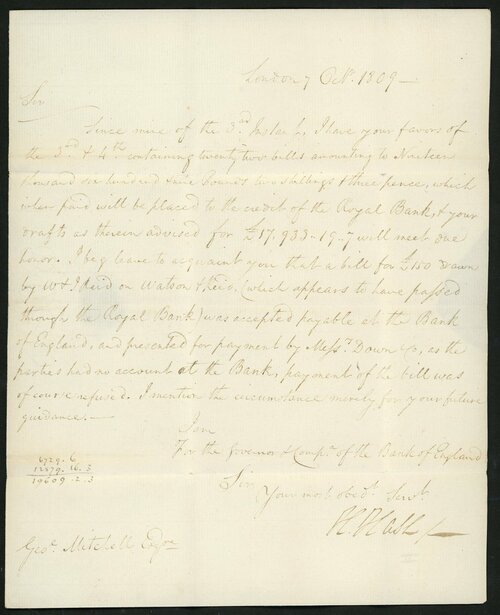 London 7 Octr. 1809
Sir
Since mine of the 3rd. Instant, I have your favors of
the 3rd. & 4th. containing twenty two bills amounting to Nineteen
thousand six hundred nine Pounds two shillings & three pence, which
when paid will be placed to the credit of the Royal Bank, & your
drafts as therein advised for £17.933-19-7 will meet due
honor. I beg leave to acquaint you that a bill for £150 Drawn
by W & J Reid on Watson & Reid, (which appears to have passed
through the Royal Bank) was accepted payable at the Bank
of England, and presented for payment by Messrs. Down & Co, as the
parties had no account at the Bank, payment of the bill was
of course refused. I mention the circumstance merely for your future
guidance.
I am
For the Govenor & Compy. of the Bank of England
Sir
Your most obedt. Servt.
6729. 6
12879. 16. 3
19609. 2. 3
Geoe. Mitchell Esqre